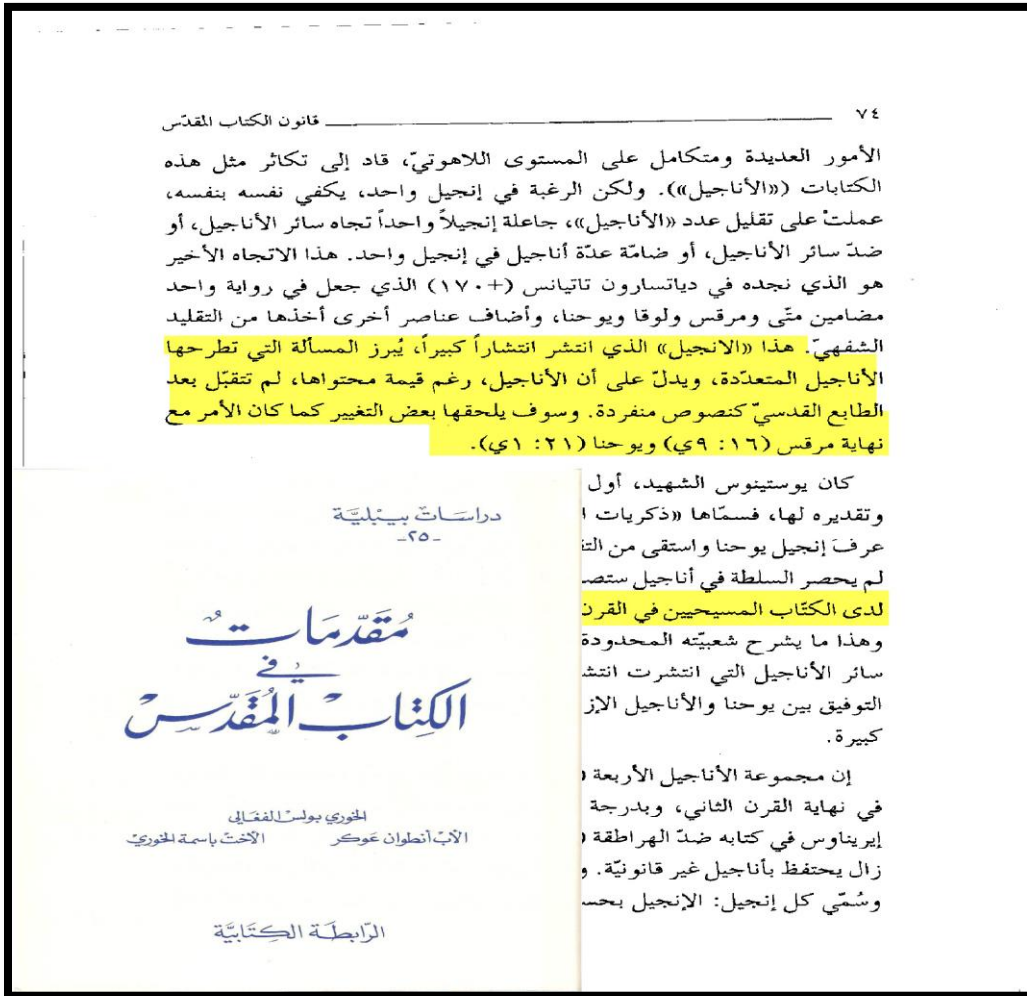 ٧٤ قانون الكتاب المقدّس
الأمور العديدة ومتكامل على المستوى اللاهوتيّ، قاد إلى تكاثر مثل هذه
الكتابات («الأناجيل»). ولكن الرغبة في إنجيل واحد، يكفي نفسه بنفسه،
عملتْ على تقليل عدد «الأناجيل»، جاعلة إنجيلاً واحداً تجاه سائر الأناجيل، أو
ضدّ سائر الأناجيل، أو ضامّة عدّة أناجيل في إنجيل واحد. هذا الاتجاه الأخير
هو الذي نجده في دياتسارون تاتيانس (+١٧٠) الذي جعل في رواية واحد
مضامين متّى ومرقس ولوقا ويوحنا، وأضاف عناصر أخرى أخذها من التقليد
الشفهيّ. هذا «الانجيل» الذي انتشر انتشاراً كبيراً، يُبرز المسألة التي تطرحها
الأناجيل المتعدّدة، ويدلّ على أن الأناجيل، رغم قيمة محتواها، لم تتقبّل بعد
الطابع القدسيّ كنصوص منفردة. وسوف يلحقها بعض التغيير كما كان الأمر مع
نهاية مرقس (١٦: ٩ي) ويوحنا (٢١: ١ي).
كان يوستينوس الشهيد، أول
وتقديره لها، فسمّاها «ذكريات
عرفَ إنجيل يوحنا واستقى من
لم يحصر السلطة في أناجيل
لدى الكتّاب المسيحيين في القرن
وهذا ما يشرح شعبيّته المحدودة
سائر الأناجيل التي انتشرت
التوفيق بين يوحنا والأناجيل
كبيرة.
إن مجموعة الأناجيل الأربعة
في نهاية القرن الثاني، وبدرجة
إيريناوس في كتابه ضدّ الهراطقة
زال يحتفظ بأناجيل غير قانونيّة.
وسُمّي كل إنجيل: الإنجيل
دراسَات بيبليَّة
-٢٥-
مُقَدّمَات
في
الكِتَاب المُقَدّس
الخوري بولس الفغَالي
الأب أنطوان عَوكر الأخت باسمة الخوري
الرّابطَة الكِتَابيَّة